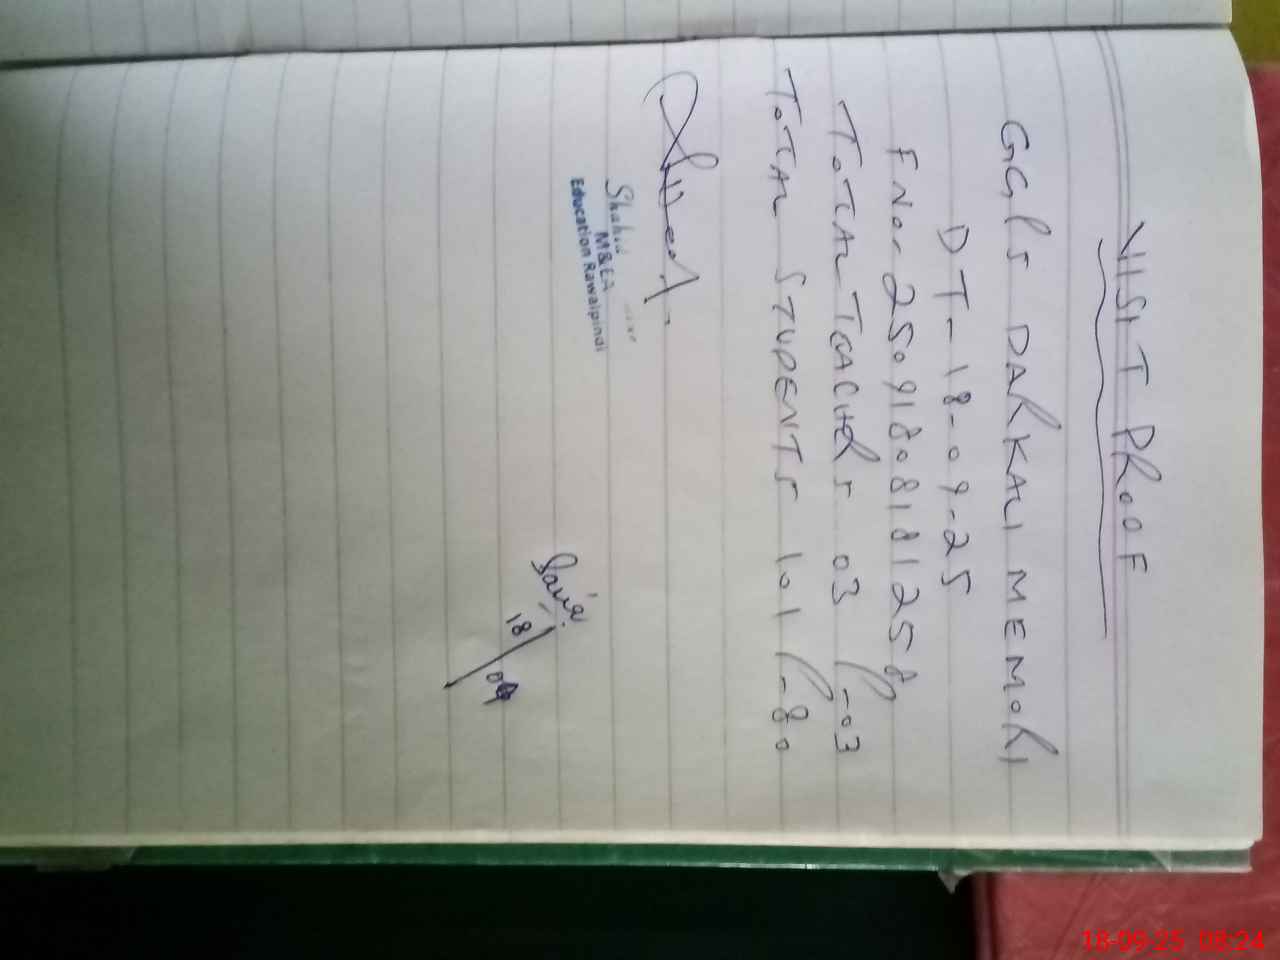 VISIT PROOF
GGPS DARKALI MEMORI
DT-18-09-25
FNo- 25091808181258
TOTAL TEACHERS 03 P-03
TOTAL STUDENTS 101 P-80
Shahid
M&EA
Education Rawalpindi
18/09
18-09-25 08:24